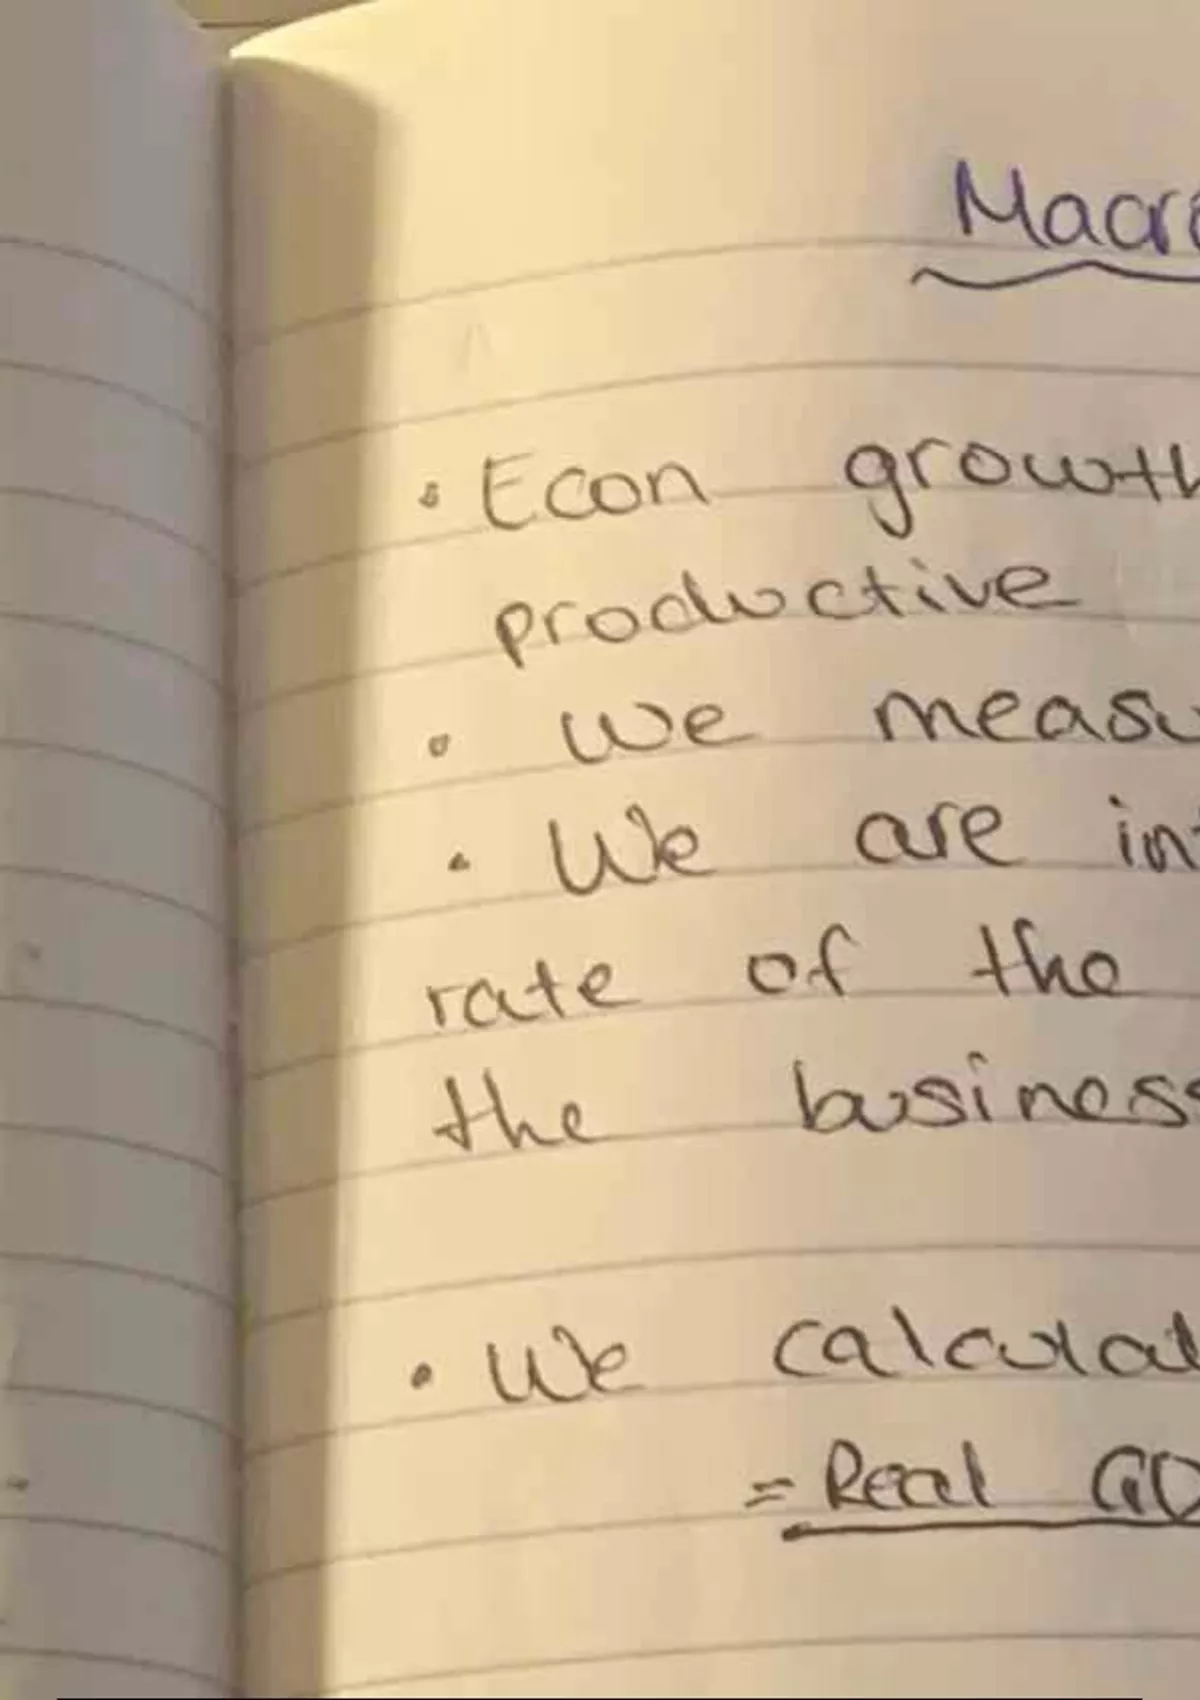 Macro
• Econ growth
productive
• We measu
• We are int
rate of the
the business
• We calculat
= Real GD